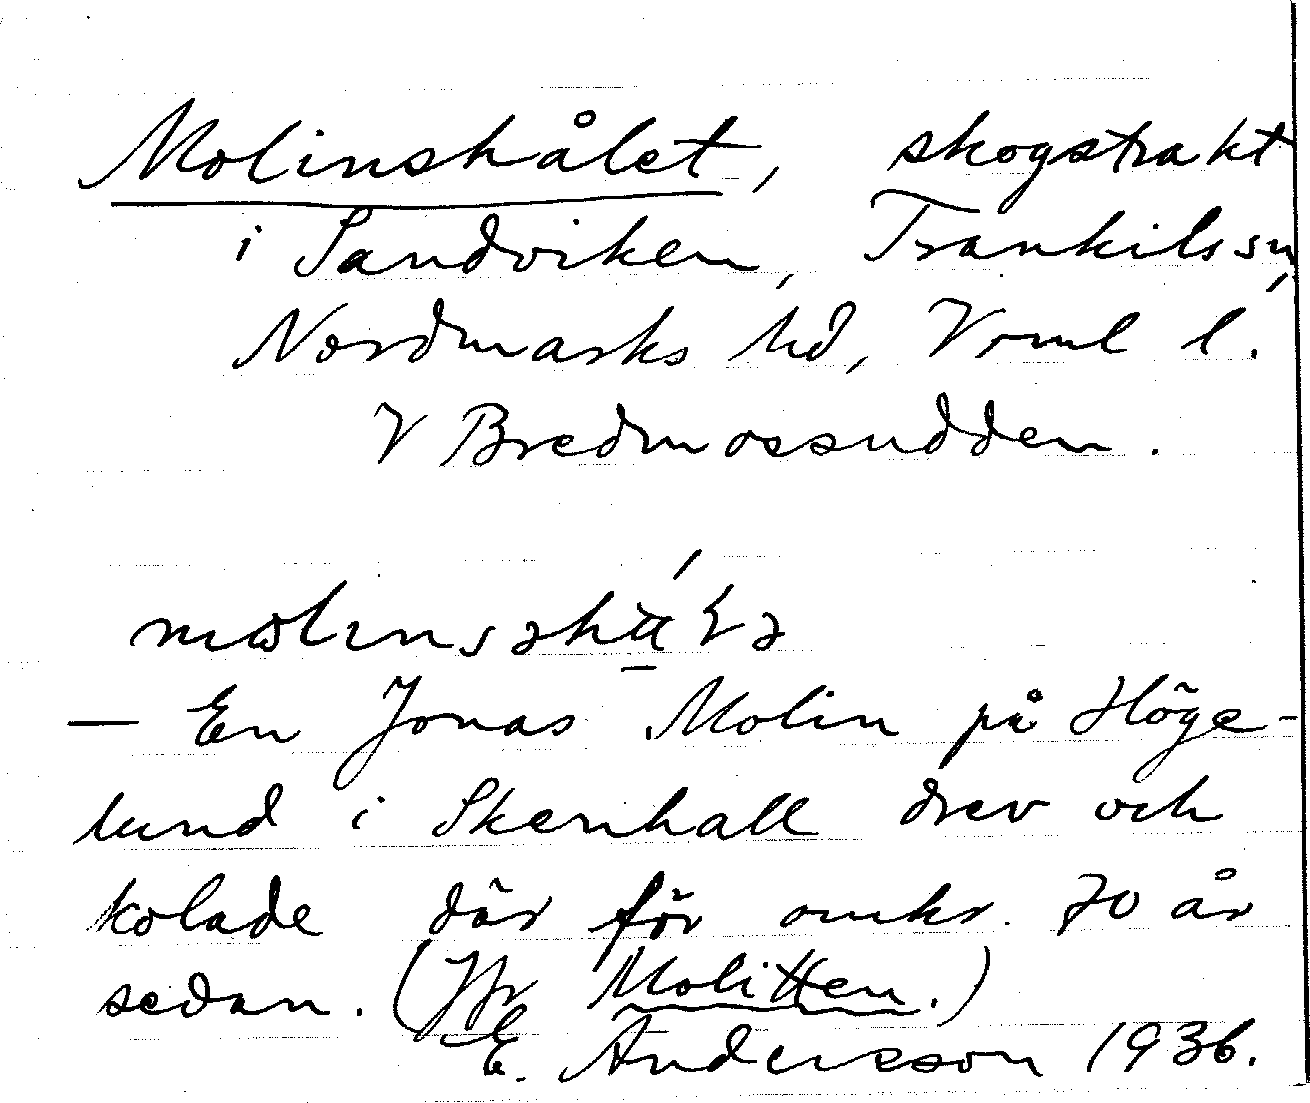 Molinskålet, skogstrakt
i Sandviken, Trankils sn,
Nordmarks hd, Vrml l.
V Bredmossudden.
— En Jonas Molin på Höge-
lund i Skenhall drev och
kolade där för omkr. 70 år
sedan. (Jfr Molitten.)
E. Andersson 1936.